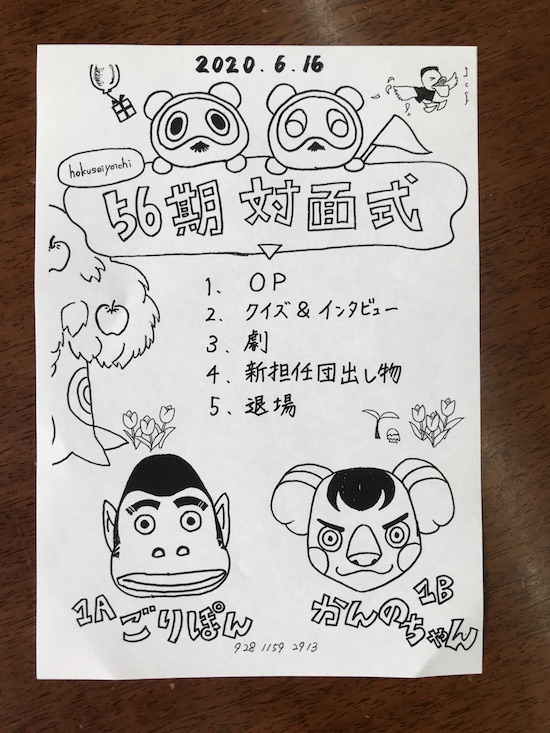 2020.6.16
hokuseiyoichi
56期 対面式
1. OP
2. クイズ & インタビュー
3. 劇
4. 新担任団出し物
5. 退場
1A ごりぽん
1B かんのちゃん
928 1159 2913